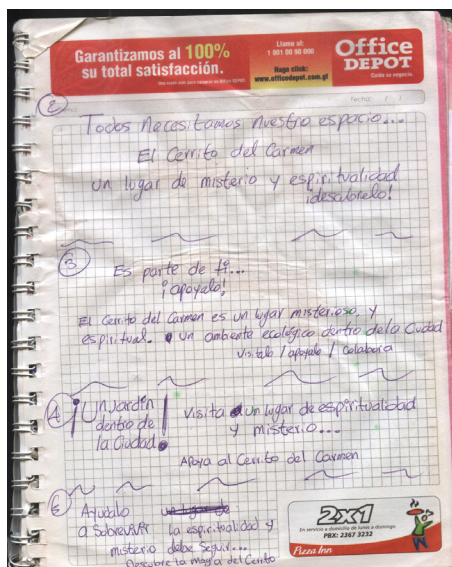 Garantizamos al 100%
su total satisfacción.
Llama al:
1 801 00 90 000
Haga click:
www.officedepot.com.gt
Office
DEPOT
Cuida su negocio.
Fecha: / /
2
Todos Necesitamos Nuestro espacio...
El Cerrito del Carmen
un lugar de misterio y espiritualidad
¡desabrelo!
3
Es parte de ti...
¡apoyalo!
El Cerrito del Carmen es un lugar misterioso, y
espiritual. un ambiente ecológico dentro de la Ciudad
Visitalo / apoyalo / Colabora
4
¡Un Jardín
dentro de
la Ciudad!
Visita un lugar de espiritualidad
y misterio...
Apoya al Cerrito del Carmen
5
Ayudalo
a Sobrevivir
un lugar de
la espiritualidad y
misterio debe seguir...
Descubre la magia del Cerrito
2x1
En servicio a domicilio de lunes a domingo
PBX: 2367 3232
Pizza Inn